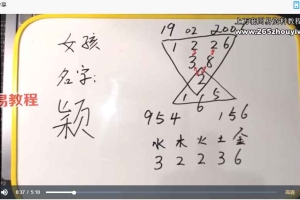 女孩
名字:
颖
19 02 200
1 2 2 6
3 8
2
1 6 5
954 156
水 木 火 土 金
3 2 2 3 6
易教程
www.265zhouyiw
0:37 / 5:10